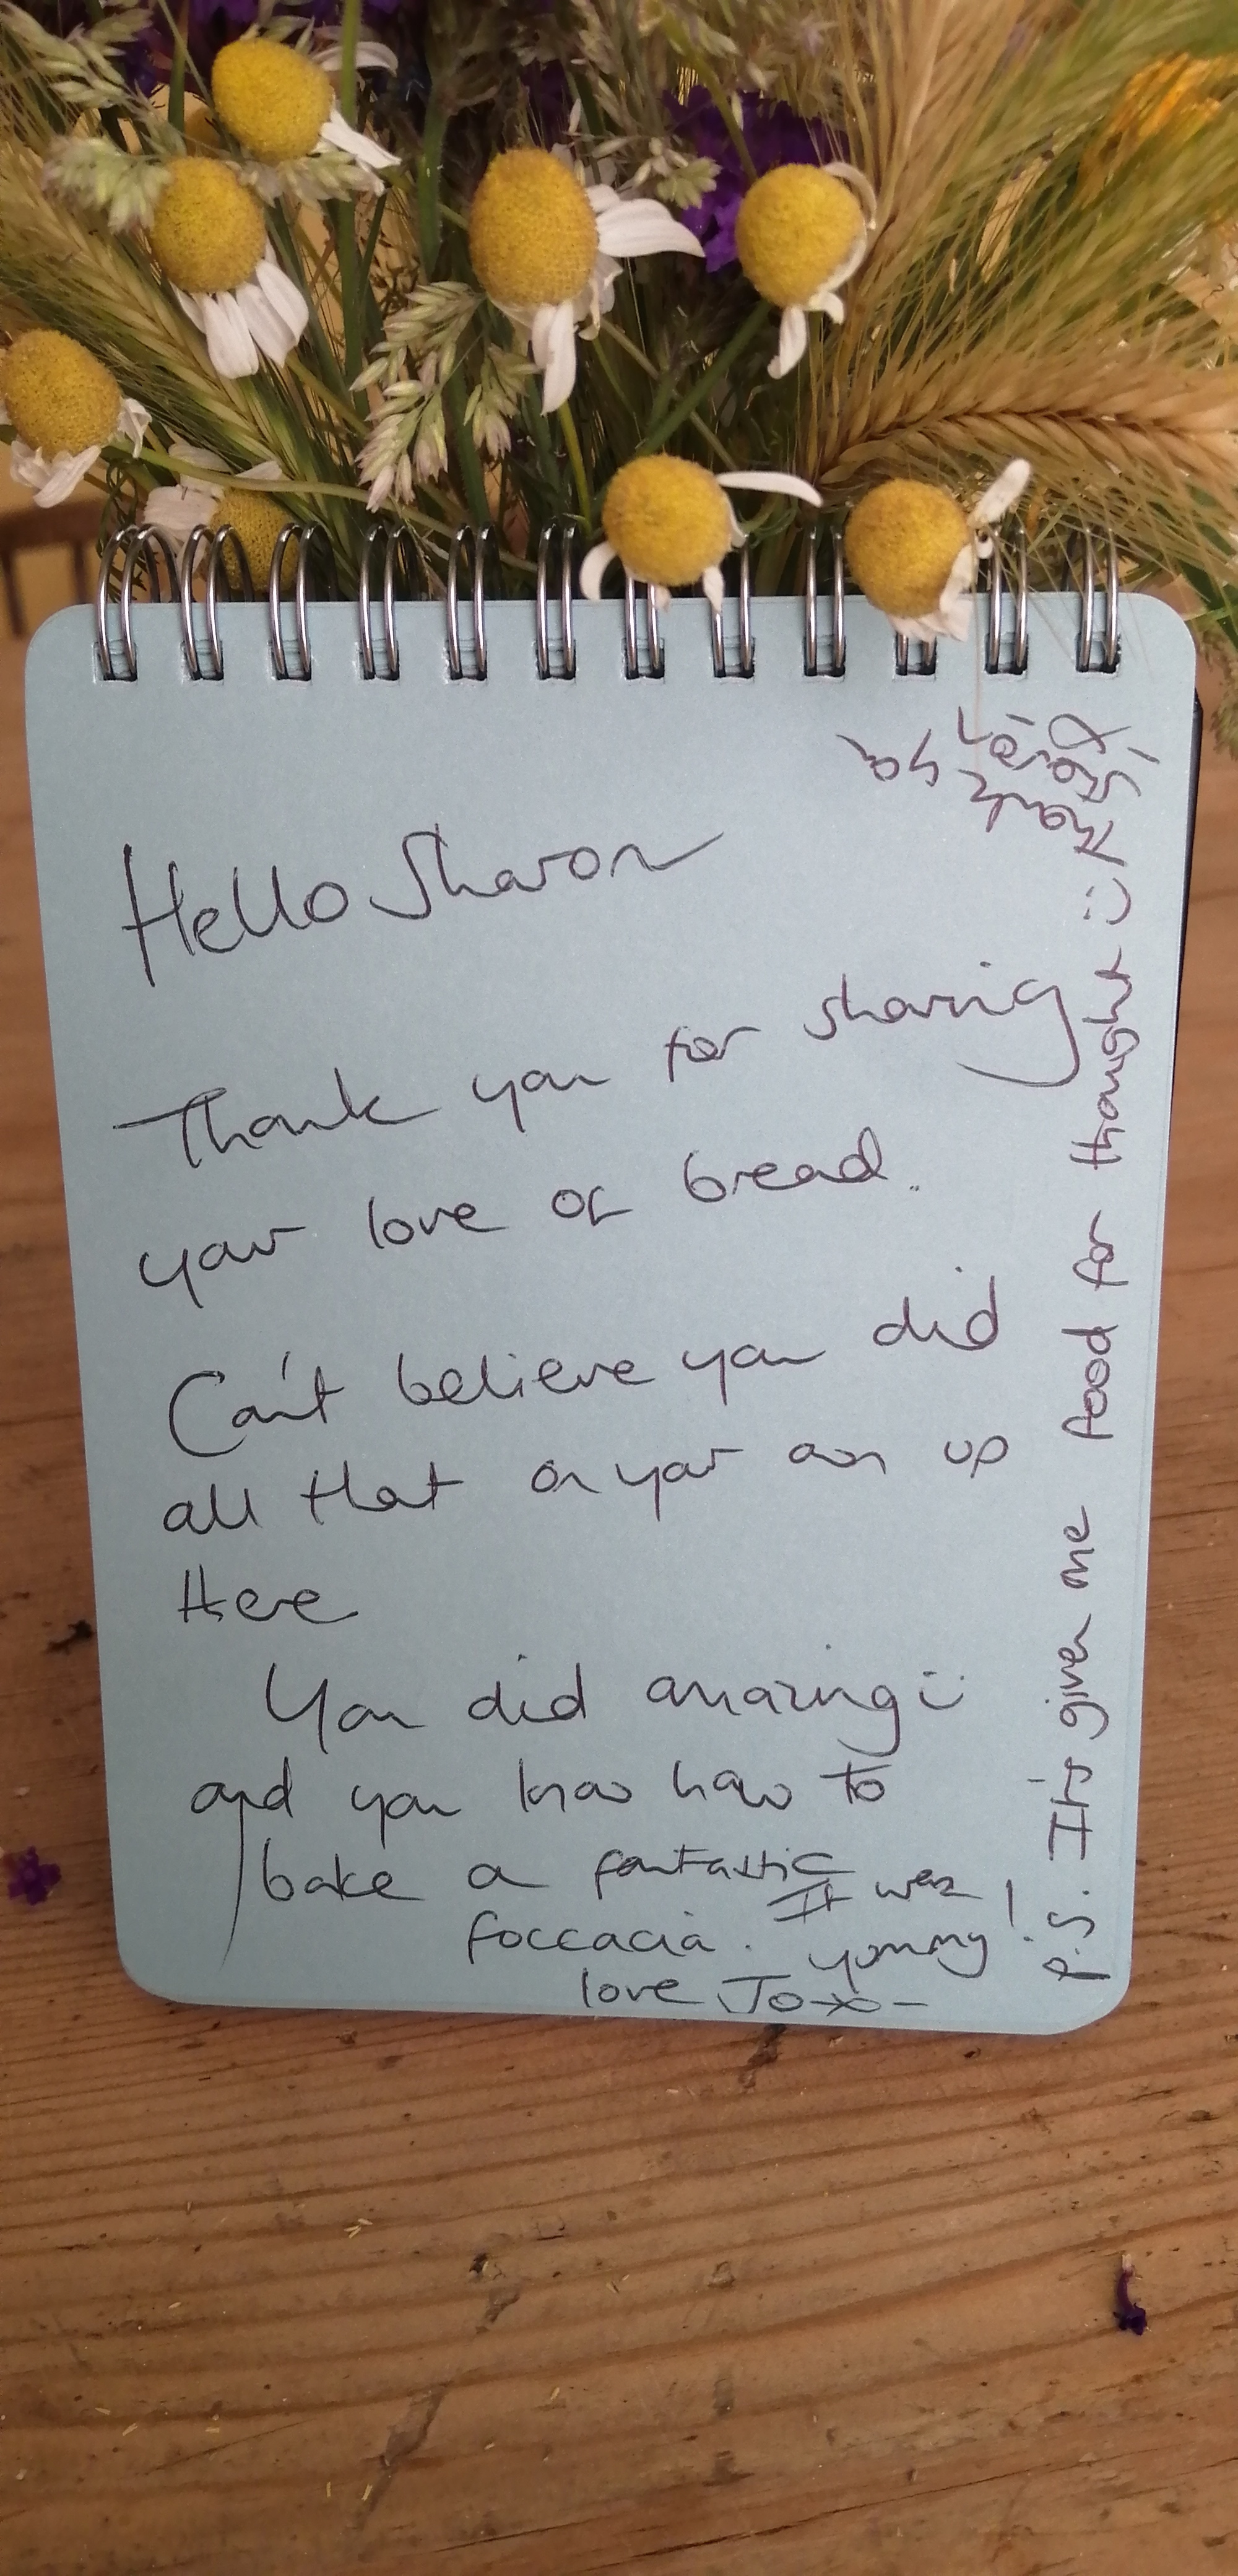 Hello Sharon
Thank you for sharing
your love of bread.
Can't believe you did
all that on your own up
Here
You did amazing :)
and you know how to
bake a fantastic
foccacia. It was
yommy!
love Jo-x-
P.S. It's given me food for thought :)
Thank you